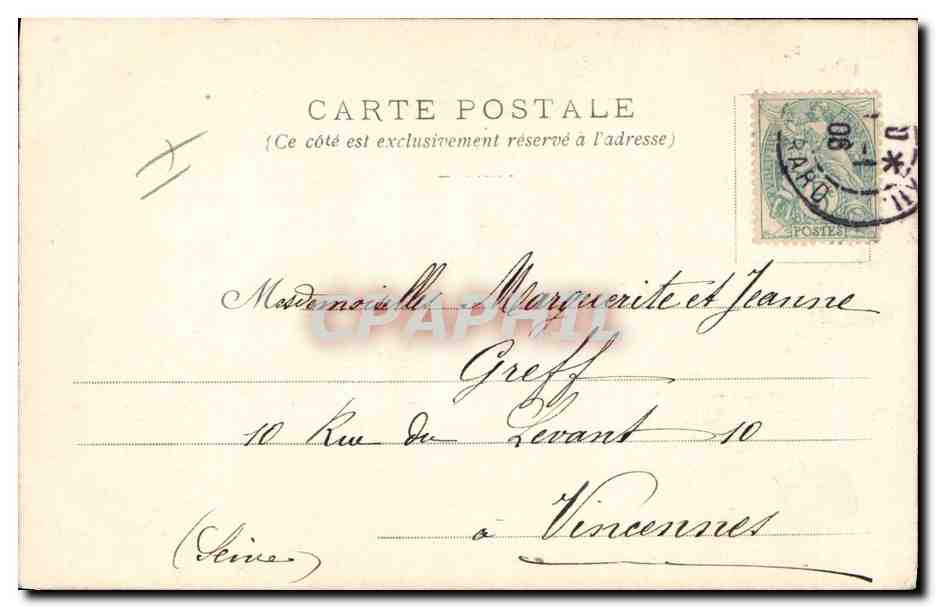 CARTE POSTALE
(Ce côté est exclusivement réservé à l'adresse)
06
RARD
POSTES
Mesdemoiselles Marguerite et Jeanne
CPAPHIL
Greff
10 Rue du Levant 10
à Vincennes
(Seine)